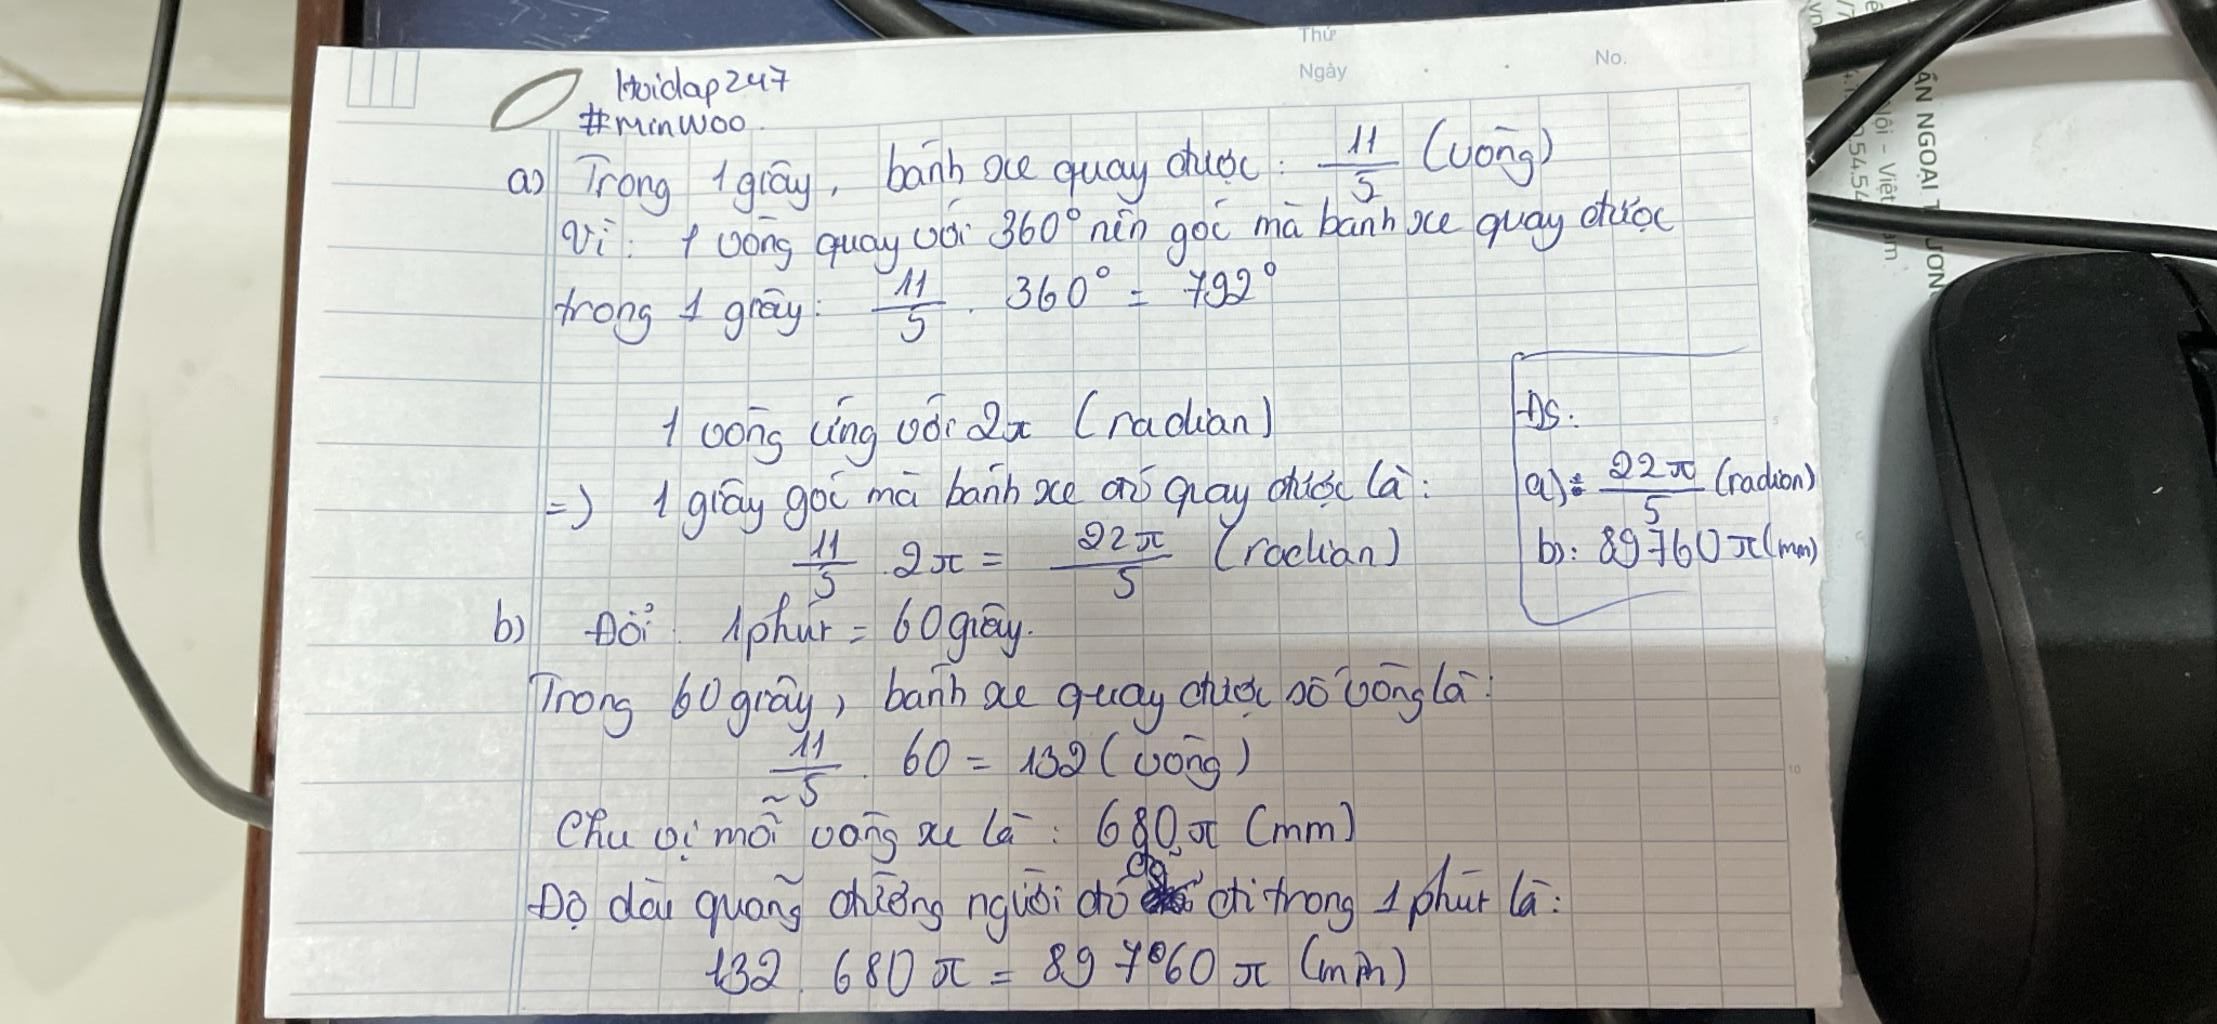 Thứ
Ngày
No.
Hoidap247
#MinWoo
a) Trong 1 giây, bánh xe quay được: 11/5 (vòng)
Vì: 1 vòng quay với 360° nên góc mà bánh xe quay được
trong 1 giây: 11/5 . 360° = 792°
1 vòng ứng với 2π (radian)
=) 1 giây góc mà bánh xe đó quay được là:
11/5 . 2π = 22π/5 (radian)
ĐS:
a): 22π/5 (radian)
b): 89760π(mm)
b) Đổi: 1 phút = 60 giây.
Trong 60 giây, bánh xe quay được số vòng là:
11/5 . 60 = 132 (vòng)
Chu vi mỗi vòng xe là: 680π (mm)
Độ dài quãng đường người đó đã đi trong 1 phút là:
132 . 680π = 89760π (mm)
5
10
ÂN NGOẠI T
ƯƠN
Nội - Việt
am
54.54